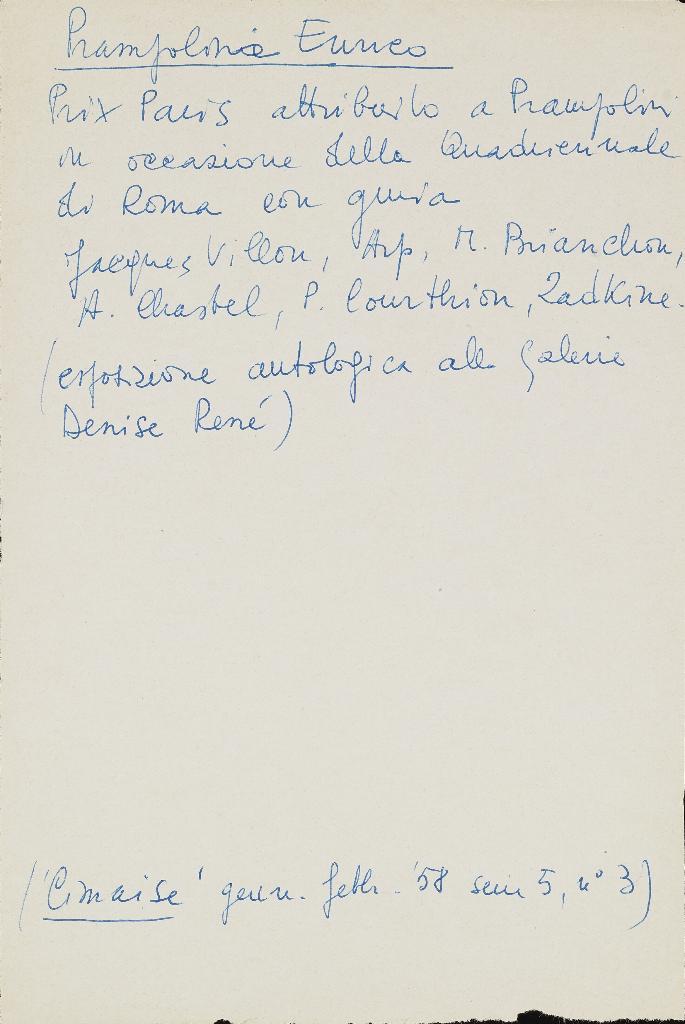 Prampolini Enrico
Prix Paris attribuito a Prampolini
in occasione della Quadriennale
di Roma con giuria
Jacques Villon, Arp, M. Brianchon,
A. Chastel, P. Courthion, Zadkine.
(esposizione antologica alla Galerie
Denise René)
('Cimaise' genn. febbr. '58 serie 5, n° 3)